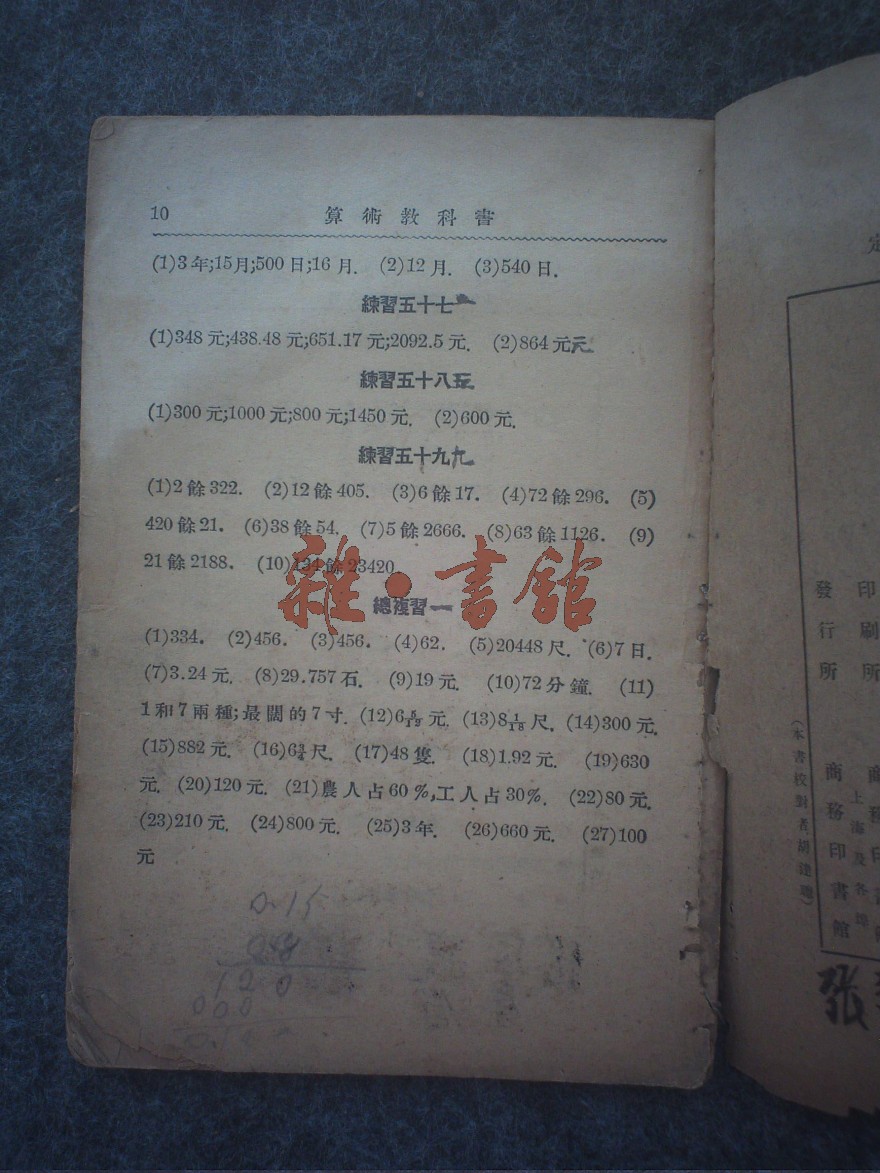 10 算術教科書
(1)3年;15月;500日;16月. (2)12月. (3)540日.
練習五十七
(1)348元;438.48元;651.17元;2092.5元. (2)864元元
練習五十八
(1)300元;1000元;800元;1450元. (2)600元.
練習五十九九
(1)2餘322. (2)12餘405. (3)6餘17. (4)72餘296. (5)
420餘21. (6)38餘54. (7)5餘2666. (8)63餘1126. (9)
21餘2188. (10)134餘23420
雜·書館
總複習一
(1)334. (2)456. (3)456. (4)62. (5)20448尺. (6)7日.
(7)3.24元. (8)29.757石. (9)19元. (10)72分鐘. (11)
1和7兩種;最闊的7寸. (12)6 元. (13)8 1/18尺. (14)300元.
(15)882元. (16)6 3/4尺. (17)48隻. (18)1.92元. (19)630
元. (20)120元. (21)農人占60%,工人占30%. (22)80元.
(23)210元. (24)800元. (25)3年. (26)660元. (27)100
元
0.15
0.48
120
000
定
印刷所
發行所
商務印書館
上海及各埠
商務印書館
(本書校對者胡達聰)
張